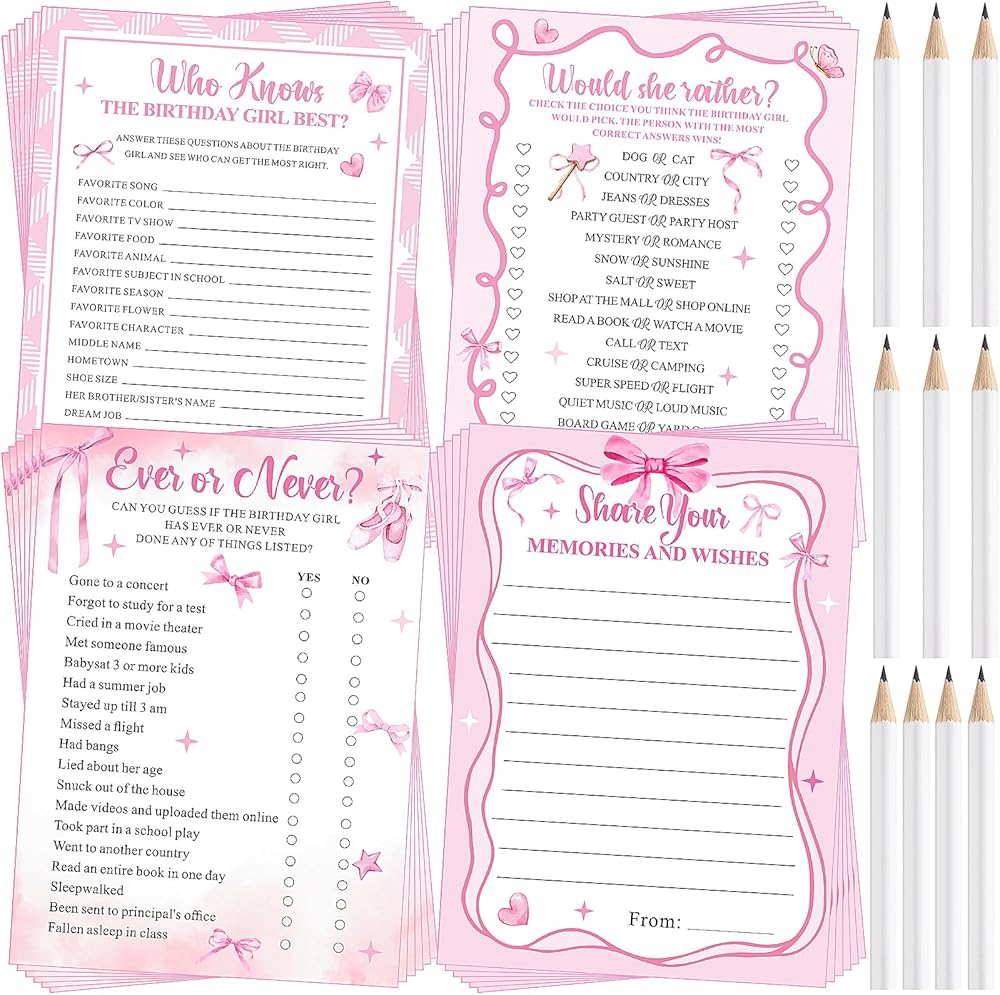 Who Knows
THE BIRTHDAY GIRL BEST?
ANSWER THESE QUESTIONS ABOUT THE BIRTHDAY
GIRL AND SEE WHO CAN GET THE MOST RIGHT.
FAVORITE SONG
FAVORITE COLOR
FAVORITE TV SHOW
FAVORITE FOOD
FAVORITE ANIMAL
FAVORITE SUBJECT IN SCHOOL
FAVORITE SEASON
FAVORITE FLOWER
FAVORITE CHARACTER
MIDDLE NAME
HOMETOWN
SHOE SIZE
HER BROTHER/SISTER'S NAME
DREAM JOB
Would she rather?
CHECK THE CHOICE YOU THINK THE BIRTHDAY GIRL
WOULD PICK. THE PERSON WITH THE MOST
CORRECT ANSWERS WINS!
DOG OR CAT
COUNTRY OR CITY
JEANS OR DRESSES
PARTY GUEST OR PARTY HOST
MYSTERY OR ROMANCE
SNOW OR SUNSHINE
SALT OR SWEET
SHOP AT THE MALL OR SHOP ONLINE
READ A BOOK OR WATCH A MOVIE
CALL OR TEXT
CRUISE OR CAMPING
SUPER SPEED OR FLIGHT
QUIET MUSIC OR LOUD MUSIC
BOARD GAME OR YARD
Ever or Never?
CAN YOU GUESS IF THE BIRTHDAY GIRL
HAS EVER OR NEVER
DONE ANY OF THINGS LISTED?
YES NO
Gone to a concert
Forgot to study for a test
Cried in a movie theater
Met someone famous
Babysat 3 or more kids
Had a summer job
Stayed up till 3 am
Missed a flight
Had bangs
Lied about her age
Snuck out of the house
Made videos and uploaded them online
Took part in a school play
Went to another country
Read an entire book in one day
Sleepwalked
Been sent to principal's office
Fallen asleep in class
Share Your
MEMORIES AND WISHES
From: